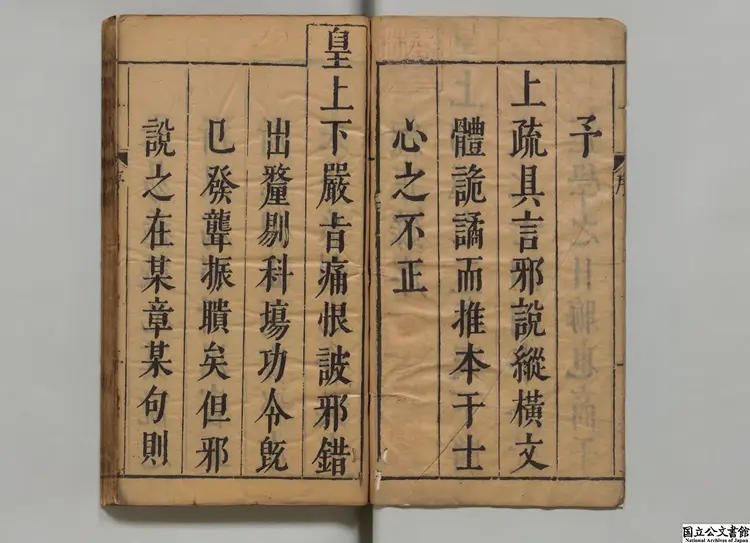 予
上疏具言邪說縱橫文
體詭譎而推本于士
心之不正
皇上下嚴旨痛恨詖邪錯
出釐剔科場功令旣
已發聾振聵矣但邪
說之在某章某句則
序
国立公文書館
National Archives of Japan